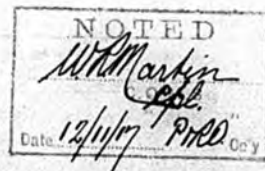 NOTED
WR Martin
Cpl.
Date 12/11/17 P.R.O. Oc'y